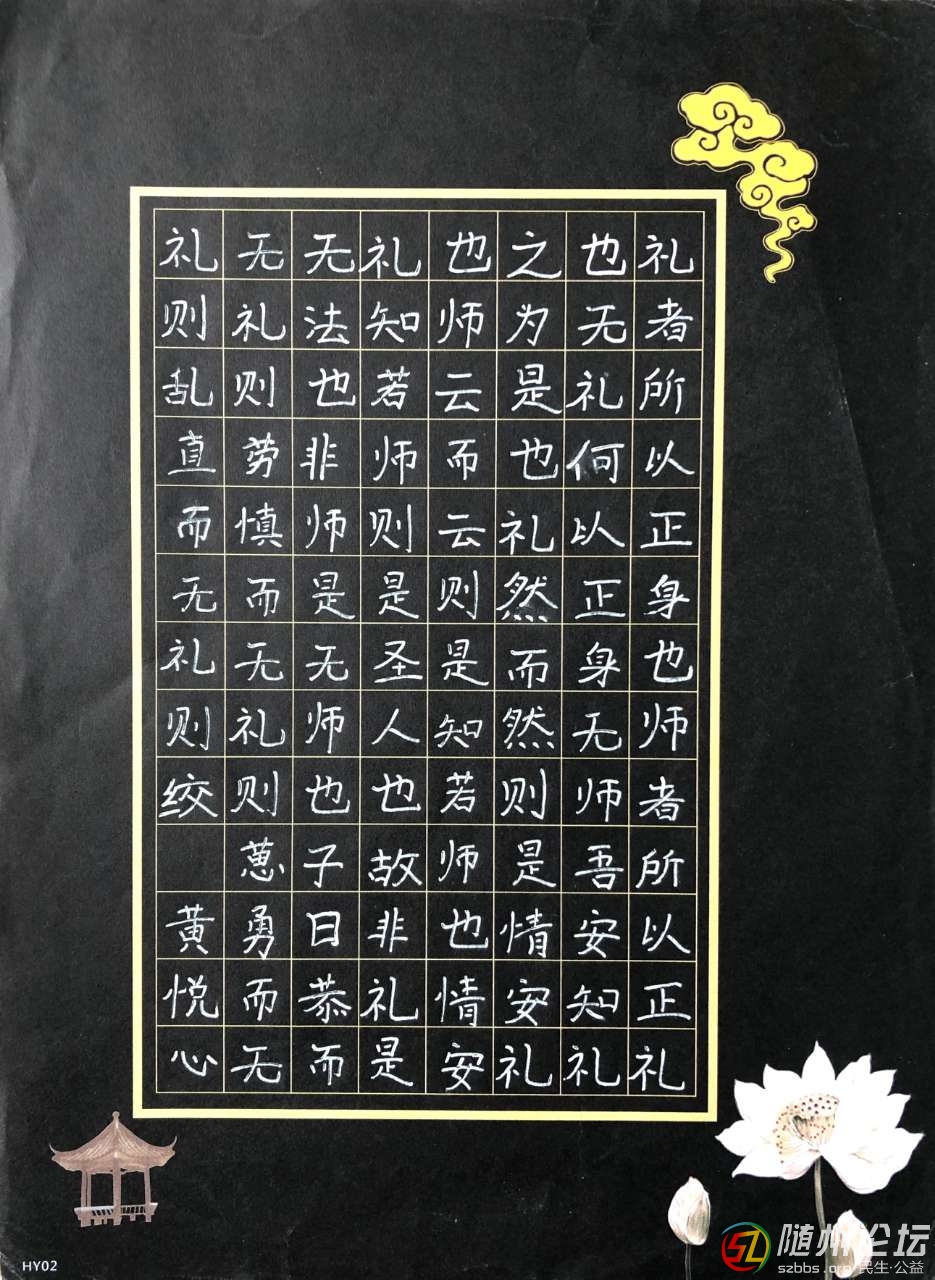 礼者所以正身也师者所以正礼
也无礼何以正身无师吾安知礼
之为是也礼然而然则是情安礼
也师云而云则是知若师也情安
礼知若师则是圣人也故非礼是
无法也非师是无师也子曰恭而
无礼则劳慎而无礼则葸勇而无
礼则乱直而无礼则绞 黄悦心
HY02
随州论坛
szbbs.org 民生·公益